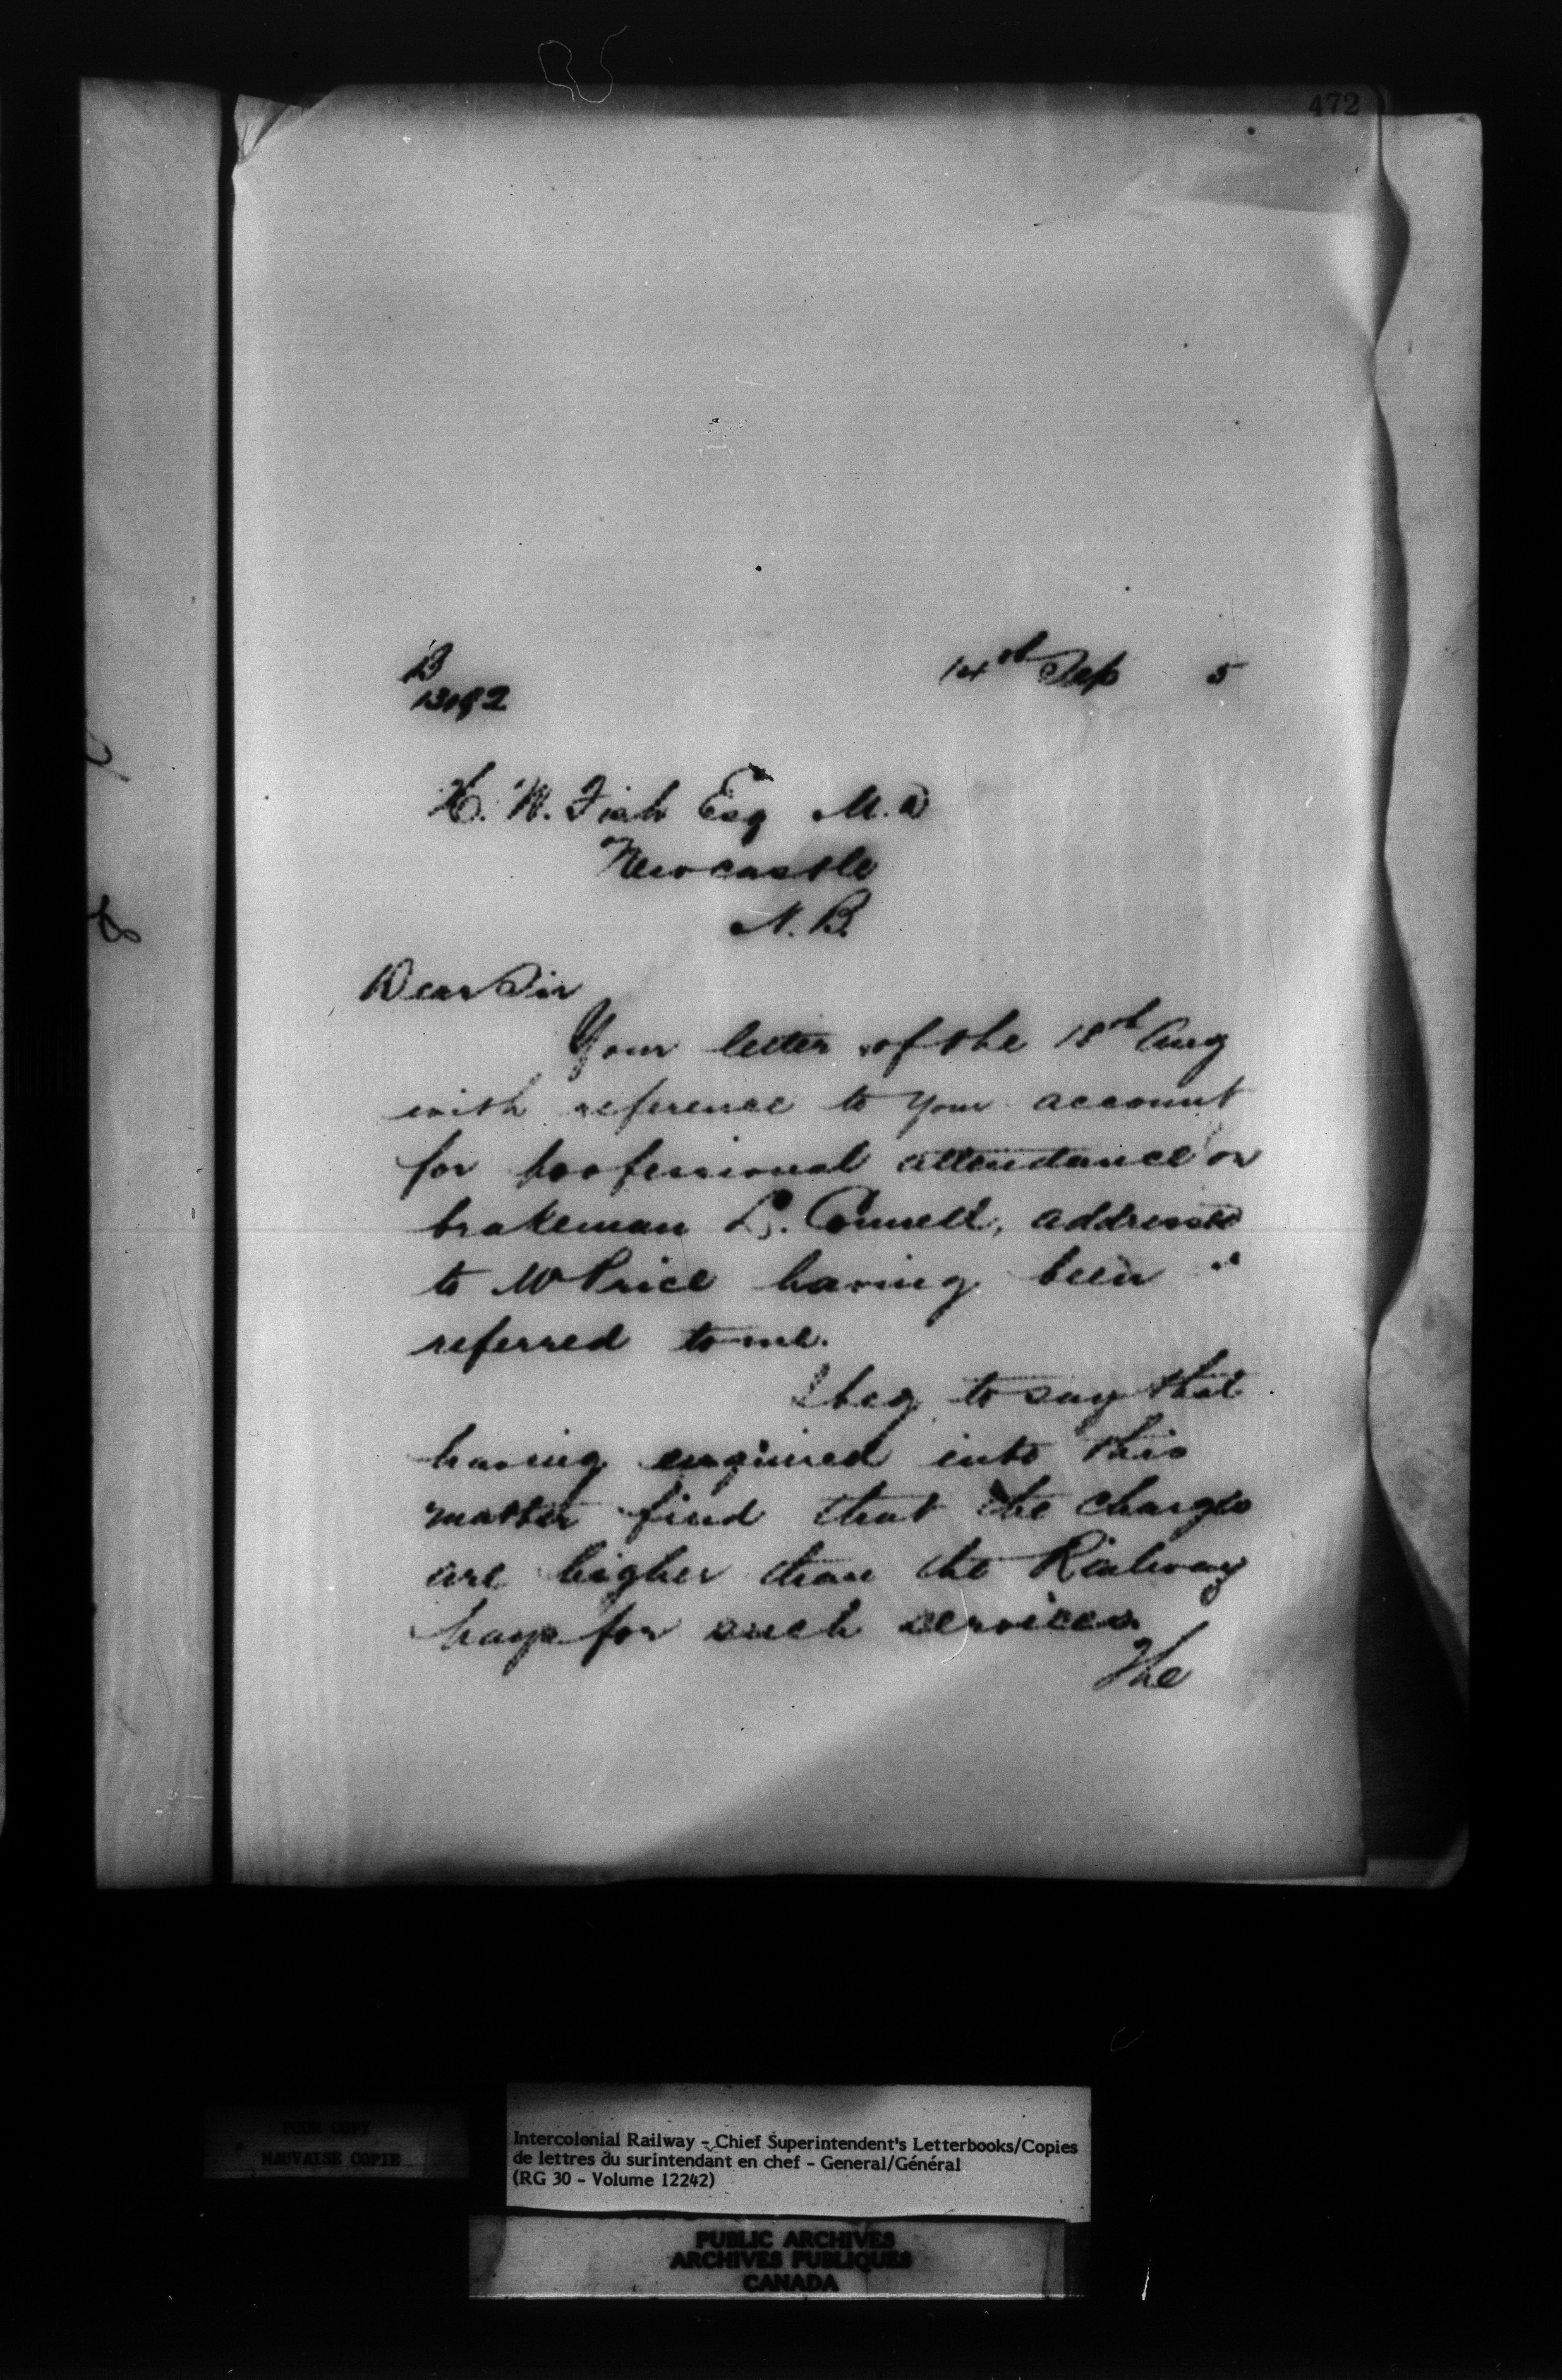 472
B
14th Sep 5
H. W. Fish Esq M.D
Newcastle
N.B.
Dear Sir
Your letter of the 18th Aug
with reference to your account
for professional attendance on
brakeman Connell, addressed
to Mr Price having been
referred to me.
I beg to say that
having enquired into this
matter find that the charges
are higher than the Railway
pays for such services.
The
POOR COPY
MAUVAISE COPIE
Intercolonial Railway - Chief Superintendent's Letterbooks/Copies
de lettres du surintendant en chef - General/Général
(RG 30 - Volume 12242)
PUBLIC ARCHIVES
ARCHIVES PUBLIQUES
CANADA